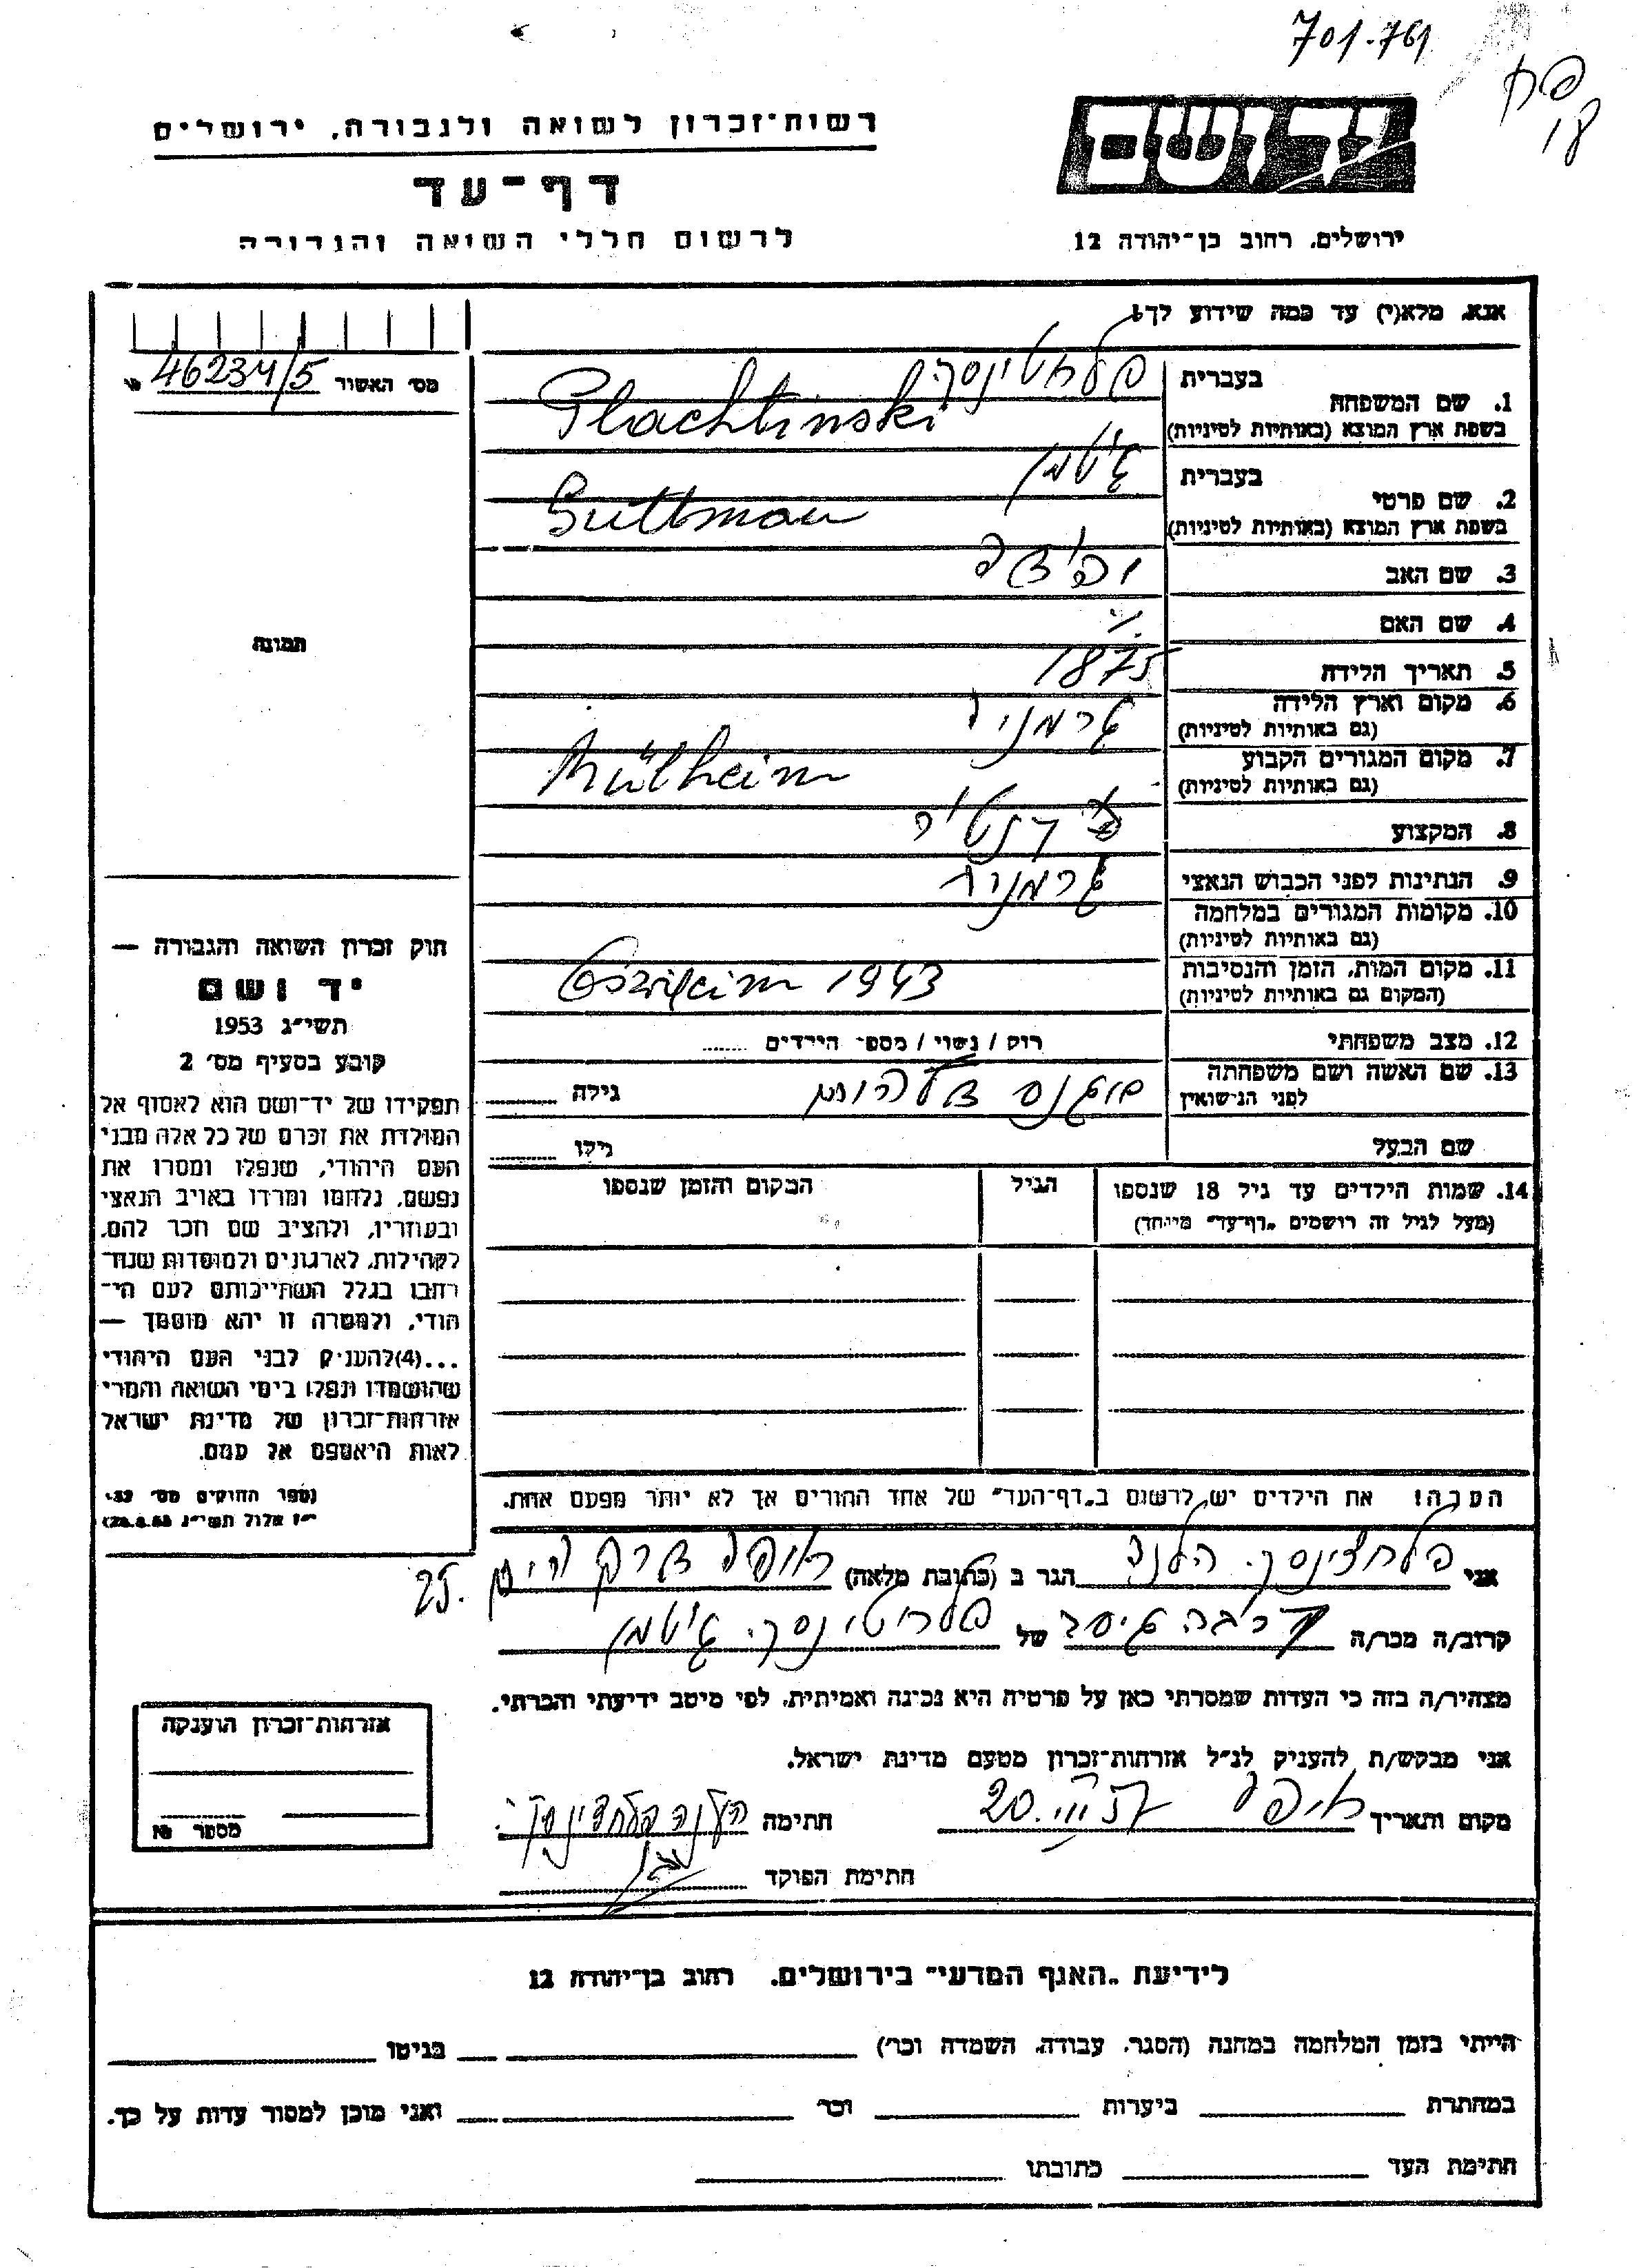 701.761
יד ושם
רשות־זכרון לשואה ולגבורה, ירושלים
דף־עד
לרשום חללי השואה והגבורה
ירושלים, רחוב בן־יהודה 12
אנא, מלא(י) עד כמה שידוע לך!
מס׳ האשור 46234/5 №
1. שם המשפחה
בעברית פלחטינסקי
בשפת ארץ המוצא (באותיות לטיניות) Plachtinski
2. שם פרטי
בעברית גוטמן
בשפת ארץ המוצא (באותיות לטיניות) Guttman
3. שם האב
4. שם האם
5. תאריך הלידה 1875
6. מקום וארץ הלידה גרמניה
(גם באותיות לטיניות)
7. מקום המגורים הקבוע Mülheim
(גם באותיות לטיניות)
8. המקצוע
9. הנתינות לפני הכבוש הנאצי גרמנית
10. מקומות המגורים במלחמה
(גם באותיות לטיניות)
11. מקום המות, הזמן והנסיבות 1943
(המקום גם באותיות לטיניות)
12. מצב משפחתי רוק / נשוי / מספר הילדים
13. שם האשה ושם משפחתה
לפני הנישואין גילה
שם הבעל גילו
14. שמות הילדים עד גיל 18 שנספו הגיל המקום והזמן שנספו
(מעל לגיל זה רושמים „דף־עד” מיוחד)
תמונה
חוק זכרון השואה והגבורה —
יד ושם
תשי״ג 1953
קובע בסעיף מס׳ 2
תפקידו של יד־ושם הוא לאסוף אל
המולדת את זכרם של כל אלה מבני
העם היהודי, שנפלו ומסרו את
נפשם, נלחמו ומרדו באויב הנאצי
ובעוזריו, ולהציב שם וזכר להם,
לקהילות, לארגונים ולמוסדות שנח־
רבו בגלל השתייכותם לעם הי־
הודי, ולמטרה זו יהא מוסמך —
...(4)להעניק לבני העם היהודי
שהושמדו ונפלו בימי השואה והמרי
אזרחות־זכרון של מדינת ישראל
לאות היאספם אל עמם.
(ספר החוקים מס׳ 132
י״ז אלול תשי״ג 28.8.53)
הערה! את הילדים יש לרשום ב„דף־העד” של אחד ההורים אך לא יותר מפעם אחת.
אני פלחצינסקי הלנה הגר ב (כתובת מלאה) חיפה דרך הים 25.
קרוב/ה מכר/ה קרבה גיסה של פלחטינסקי גוטמן
מצהיר/ה בזה כי העדות שמסרתי כאן על פרטיה היא נכונה ואמיתית, לפי מיטב ידיעתי והכרתי.
אני מבקש/ת להעניק לנ״ל אזרחות־זכרון מטעם מדינת ישראל.
מקום ותאריך חיפה חתימה הלנה פלחצינסקי
חתימת הפוקד
אזרחות־זכרון הוענקה
מספר №
לידיעת „האגף המדעי” בירושלים, רחוב בן־יהודה 12
הייתי בזמן המלחמה במחנה (הסגר, עבודה, השמדה וכו׳) בגיטו
במחתרת ביערות וכו׳ ואני מוכן למסור עדות על כך.
חתימת העד כתובתו